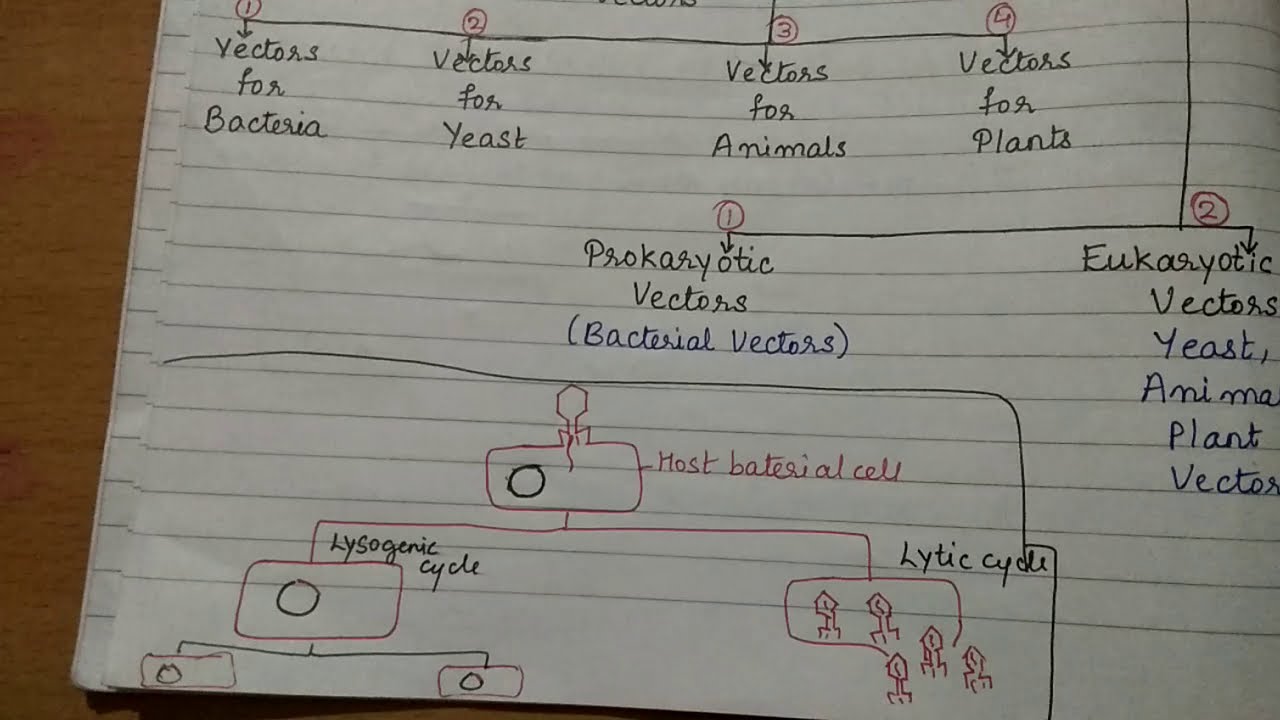 Vectors
① ② ③ ④
Vectors for Bacteria
Vectors for Yeast
Vectors for Animals
Vectors for Plants
① ②
Prokaryotic
Vectors
(Bacterial Vectors)
Eukaryotic
Vectors
Yeast,
Anima
Plant
Vector
Host baterial cell
Lysogenic
cycle
Lytic cycle